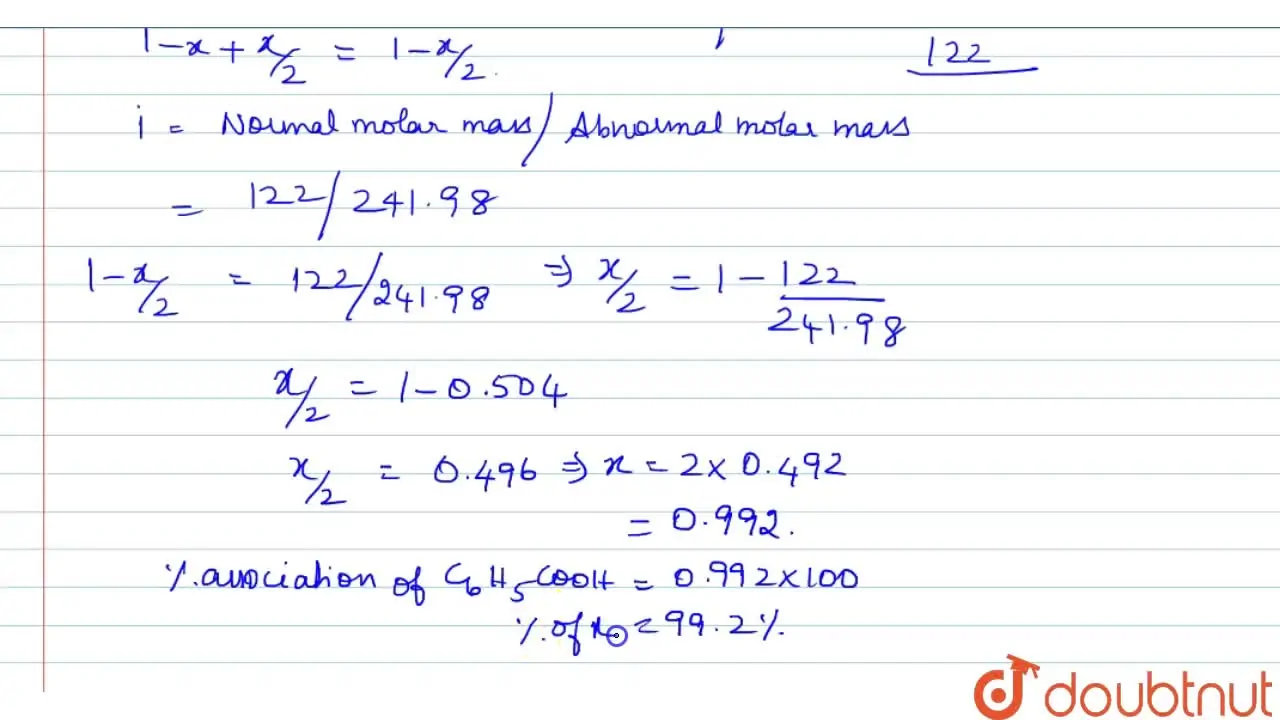 1-x+x/2 = 1-x/2.
122
i = Normal molar mass/Abnormal molar mass
= 122/241.98
1-x/2 = 122/241.98 ⇒ x/2 = 1-122/241.98
x/2 = 1-0.504
x/2 = 0.496 ⇒ x = 2x0.492
= 0.992.
%.association of C6H5COOH = 0.992x100
%.of x = 99.2%.
doubtnut